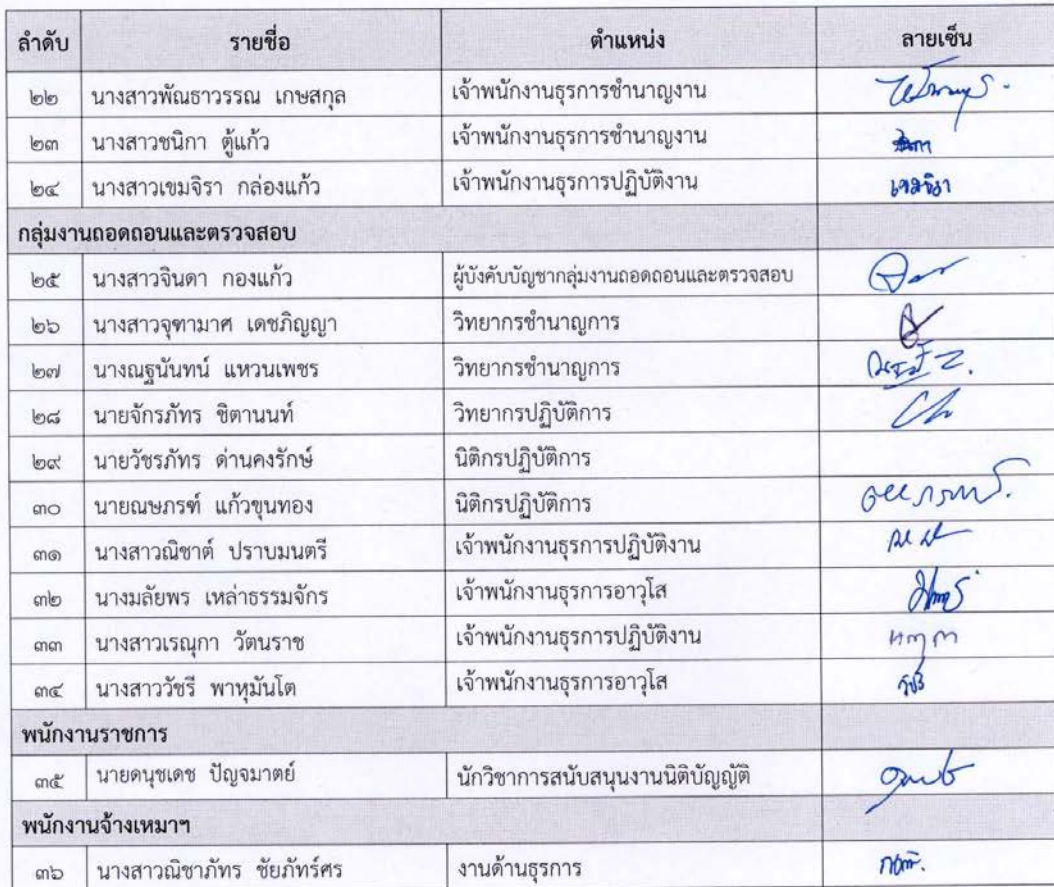 ลำดับ รายชื่อ ตำแหน่ง ลายเซ็น
๒๒ นางสาวพัณธาวรรณ เกษสกุล เจ้าพนักงานธุรการชำนาญงาน
๒๓ นางสาวชนิกา ตู้แก้ว เจ้าพนักงานธุรการชำนาญงาน
๒๔ นางสาวเขมจิรา กล่องแก้ว เจ้าพนักงานธุรการปฏิบัติงาน เขมจิรา
กลุ่มงานถอดถอนและตรวจสอบ
๒๕ นางสาวจินดา กองแก้ว ผู้บังคับบัญชากลุ่มงานถอดถอนและตรวจสอบ
๒๖ นางสาวจุฑามาศ เดชภิญญา วิทยากรชำนาญการ
๒๗ นางณฐนันทน์ แหวนเพชร วิทยากรชำนาญการ
๒๘ นายจักรภัทร ชิตานนท์ วิทยากรปฏิบัติการ
๒๙ นายวัชรภัทร ด่านคงรักษ์ นิติกรปฏิบัติการ
๓๐ นายณษภรฑ์ แก้วขุนทอง นิติกรปฏิบัติการ
๓๑ นางสาวณิชาต์ ปราบมนตรี เจ้าพนักงานธุรการปฏิบัติงาน
๓๒ นางมลัยพร เหล่าธรรมจักร เจ้าพนักงานธุรการอาวุโส
๓๓ นางสาวเรณุกา วัตนราช เจ้าพนักงานธุรการปฏิบัติงาน
๓๔ นางสาววัชรี พาหุมันโต เจ้าพนักงานธุรการอาวุโส
พนักงานราชการ
๓๕ นายดนุชเดช ปัญจมาตย์ นักวิชาการสนับสนุนงานนิติบัญญัติ
พนักงานจ้างเหมาฯ
๓๖ นางสาวณิชาภัทร ชัยภัทร์ศร งานด้านธุรการ